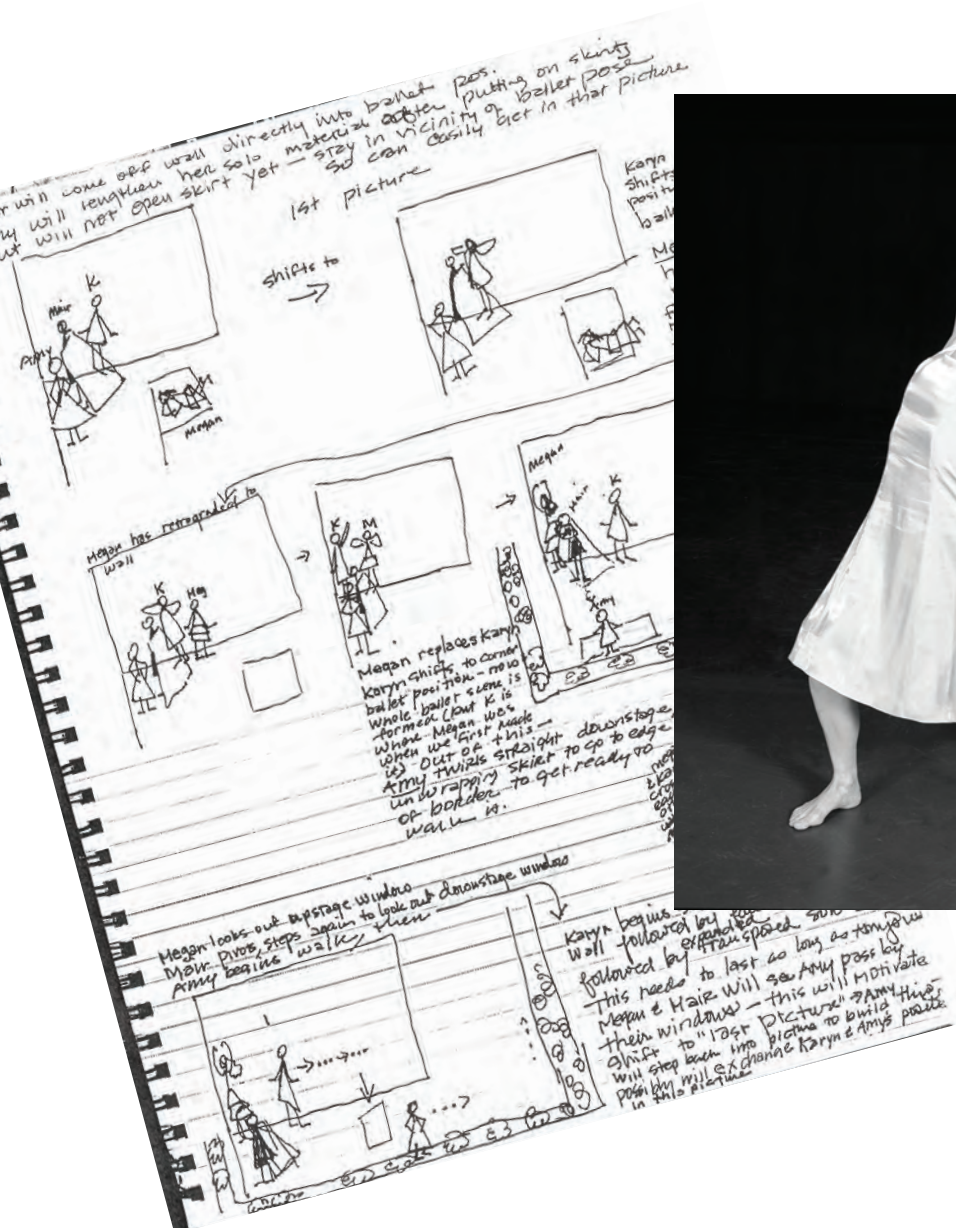 r will come off wall directly into ballet pos.
ny will lengthen her solo material after putting on skirts
ut will not open skirt yet — stay in vicinity of ballet pose
so can easily get in that picture
1st picture
Karyn
Shifts
positi
ball
Me
h
shifts to
K
Mair
Amy
Megan
Megan has retrograded to
wall
K
Meg
K
M
Megan
Mair
K
Amy
Megan replaces Karyn
Karyn shifts to corner
ballet position – now
whole ballet scene is
formed (but K is
where Megan was
when we first made
it) out of this —
Amy twirls straight downstage
unwrapping skirt to go to edge
of border to get ready to
walk it.
Megan looks out upstage window
Mair pivots, steps again to look out downstage window
Amy begins walk, then
Karyn begins
wall followed by
expanded
followed by transposed solo
This needs to last as long as
Megan & Mair will see Amy pass by
their windows — this will motivate
shift to "last picture" → Amy
will step back into picture to build this,
possibly will exchange Karyn & Amy's
in this picture